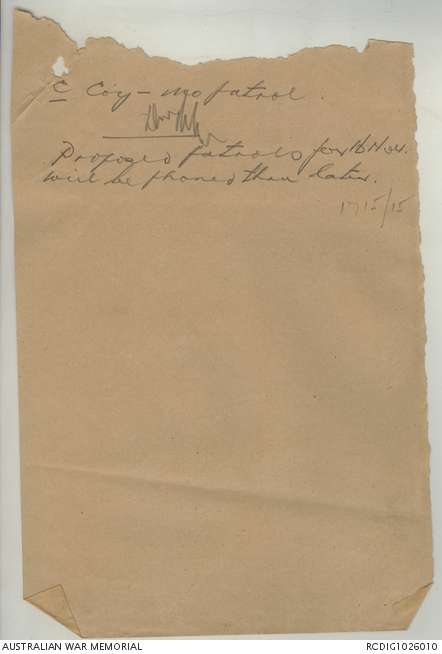 C Coy - no patrol.
Proposed patrols for 16 Nov.
will be phoned thru later.
1715/15
AUSTRALIAN WAR MEMORIAL
RCDIG1026010